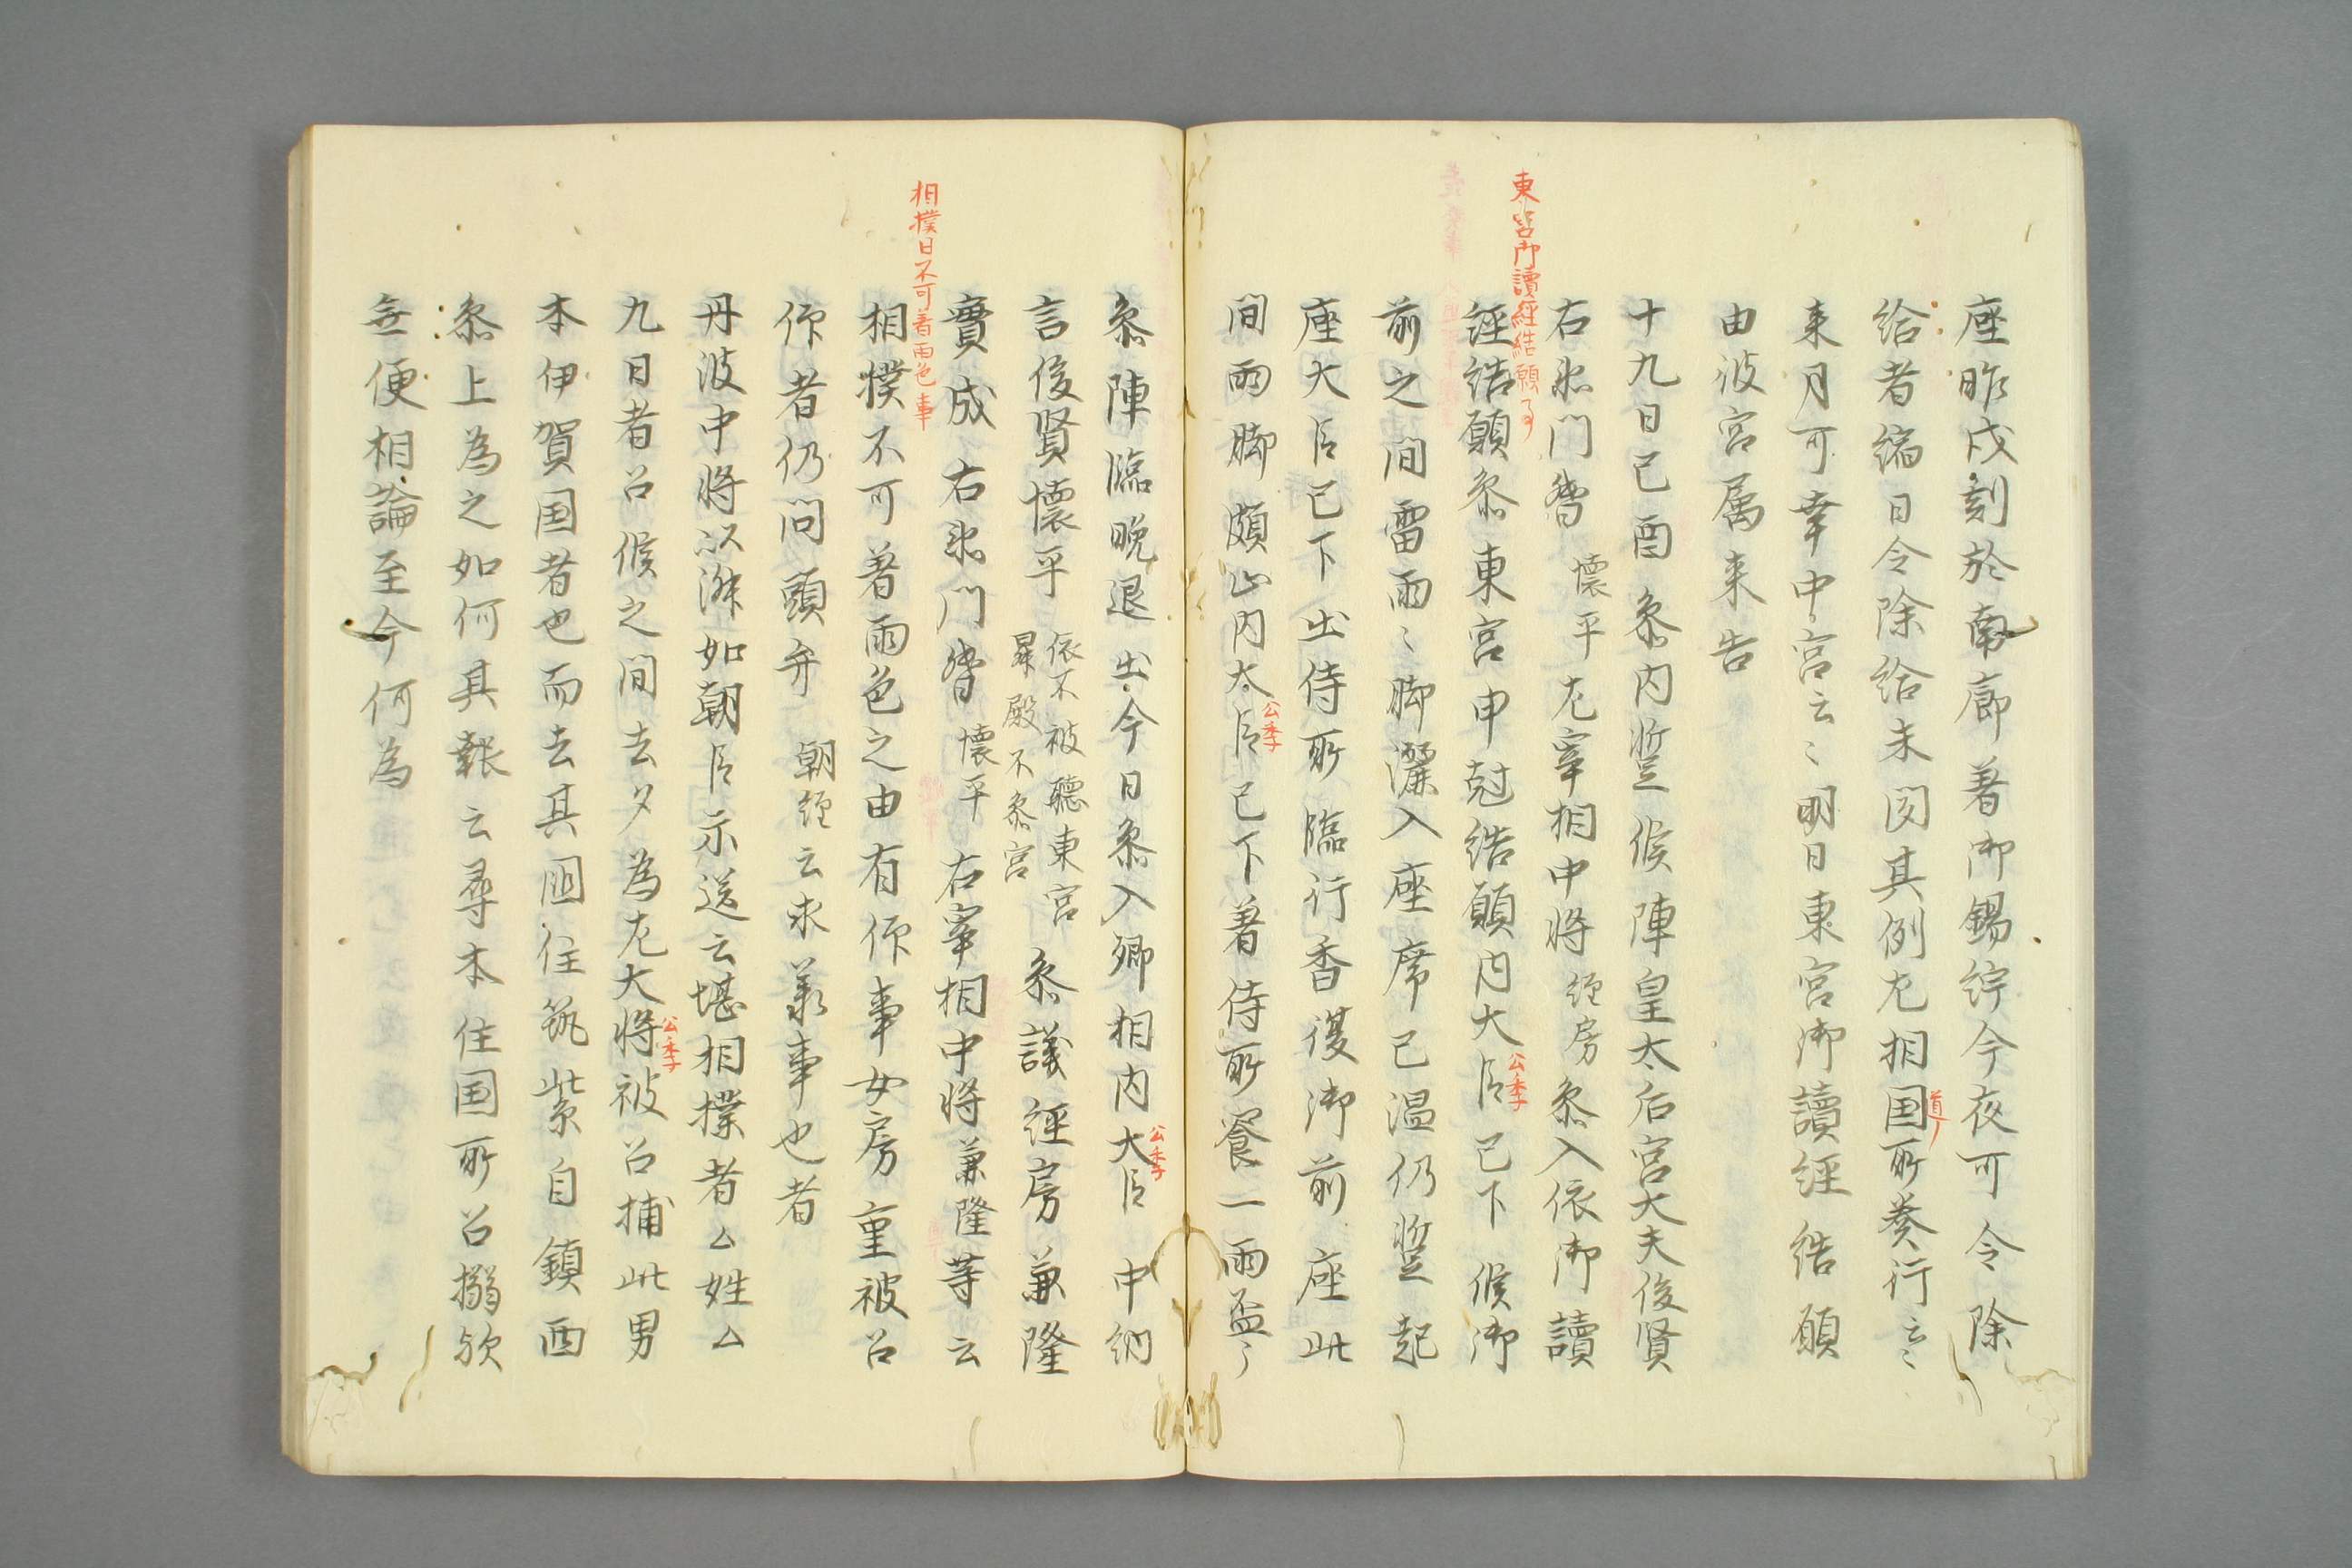 座昨戌刻於南廊著御錫紵今夜可令除
給者編日令除給未聞其例左相国所奏行云々
道〻
来月可幸中宮云々明日東宮御讀経結願
由彼宮属来告
十九日己酉参内竪候陣皇太后宮大夫俊賢
東宮御讀経結願事
右衛門督懐平左宰相中将経房参入依御讀
経結願参東宮申尅結願内大臣已下候御
公季
前之間雷雨々脚灑入座席已湿仍竪起
座大臣已下出侍所臨行香復御前座此
間雨脚頗止内大臣已下著侍所饗一両盃了
公季
参陣臨晩退出今日参入卿相内大臣中納
公季
言俊賢懐平依不被聴東宮昇殿不参宮参議経房兼隆
實成右衛門督懐平右宰相中将兼隆等云
相撲日不可着両色事
相撲不可著両色之由有作事女房重被召
作者仍問頭弁朝経云求兼事也者
丹波中将以済如朝臣示送云堪相撲者ム姓ム
九日者召候之間去夕為左大将被召捕此男
公季
本伊賀国者也而去其国住筑紫自鎮西
参上為之如何其報云尋本住国所召搦欤
無便相論至今何為